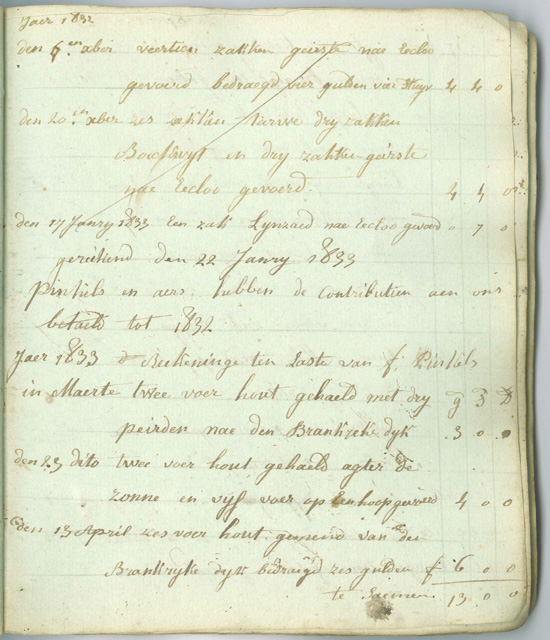 Jaer 1832
den 6en xber veertien zakken geirste nae Eecloo
gevoerd bedraegd vier gulden vier stuyv 4 4 0
den 20en xber zes zakken tarwe dry zakken
Boeckwyt en dry zakken geirste
nae Eecloo gevoerd. 4 4 0
den 17 Janry 1833 Een zak Lynzaed nae Eecloo gevoerd 0 7 0
gerekend den 22 Janry 1833
Pintiels en aers hebben de Contributien aen ons
betaeld tot 1832
Jaer 1833 d Reekeninge ten Laste van f. Pintiels
in Maerte twee voer hout gehaeld met dry g S D
peirden nae den Brantryke dyk 3 0 0
den 23 dito twee voer hout gehaeld agter de
zonne en vyf voer op Een hoop gevoerd 4 0 0
den 13 April zes voer hout gemend van den
Brantryke dyk bedraegd zes gulden f 6 0 0
te saemen 13 0 0